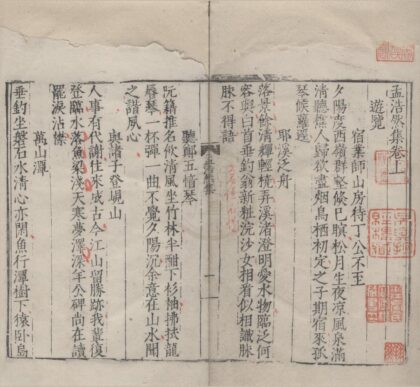 孟浩然集卷上
遊覽
宿業師山房待丁公不至
夕陽度西嶺群壑倐已瞑松月生夜凉風泉滿
清聽樵人歸欲盡烟鳥栖初定之子期宿來孤
琴候蘿逕
耶溪泛舟
落景餘清輝輕橈弄溪渚澄明愛水物臨泛何
容與白首垂釣翁新粧浣沙女相看似相識脉
脉不得語
聽鄭五愔琴
阮籍推名飲清風坐竹林半酣下衫袖拂拭龍
唇琴一杯彈一曲不覺夕陽沉余意在山水聞
之諧夙心
與諸子登峴山
人事有代謝往來成古今江山留勝跡我輩復
登臨水落魚梁淺天寒夢澤深羊公碑尚在讀
罷淚沾襟
萬山潭
垂釣坐磐石水清心亦閑魚行潭樹下猿卧島